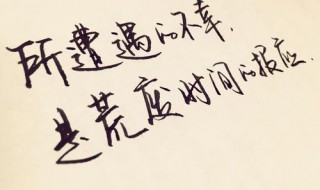 所遭遇的不幸，
是荒废时间的报应.